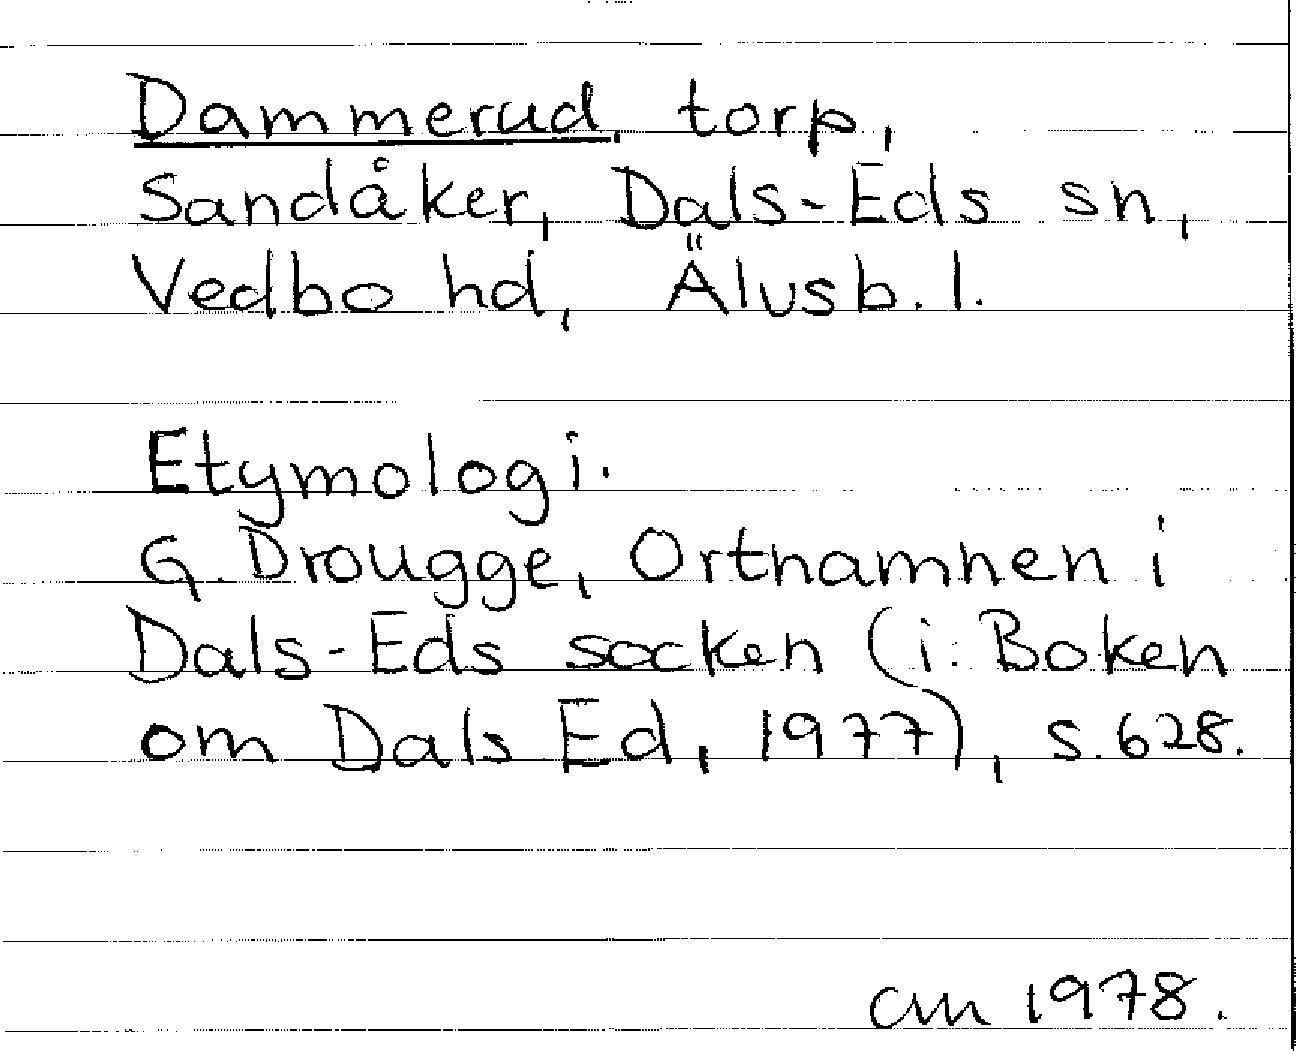 Dammerud, torp,
Sandåker, Dals-Eds sn,
Vedbo hd, Älvsb. l.
Etymologi.
G. Drougge, Ortnamnen i
Dals-Eds socken (i: Boken
om Dals Ed, 1977), s. 628.
CM 1978.